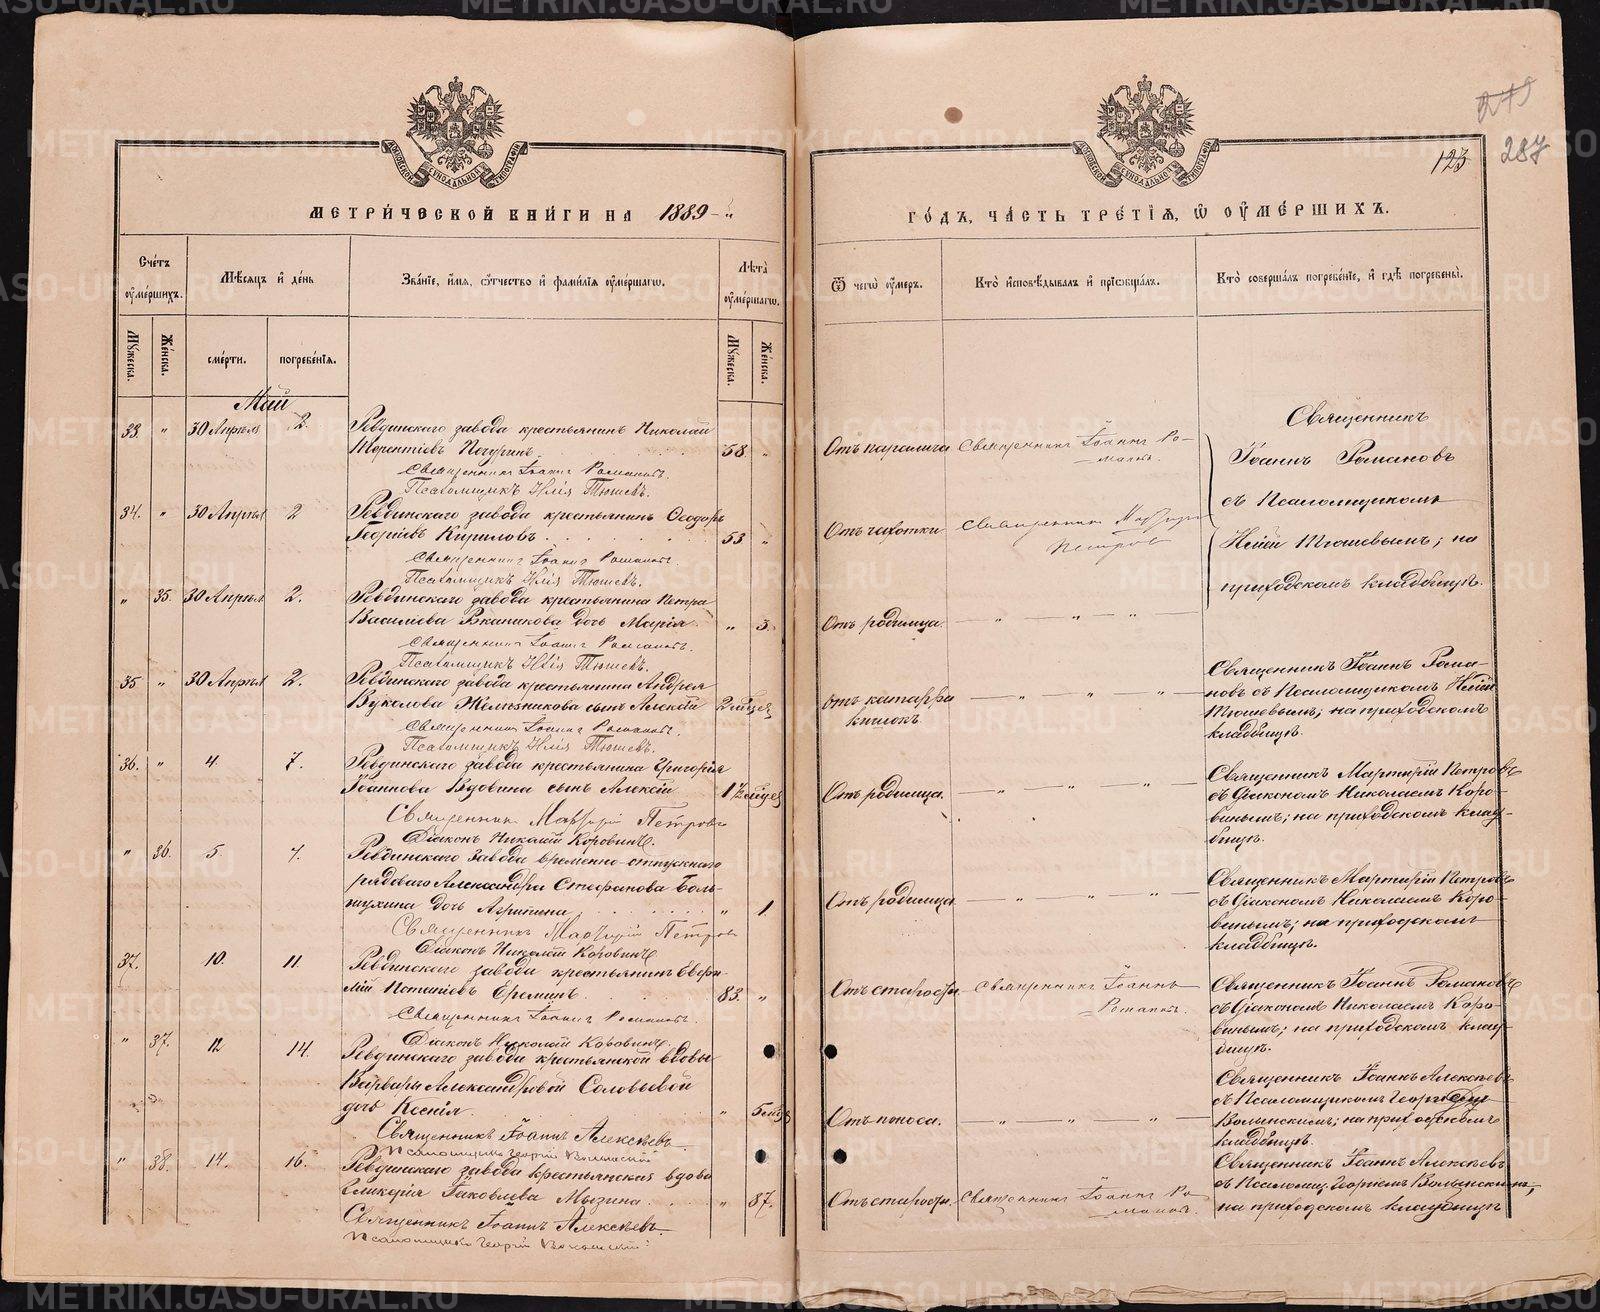 279
287
123
МЕТРИ́ЧЕСКОЙ КНИ́ГИ НА 1889
ГО́ДЪ, ЧА́СТЬ ТРЕ́ТІѦ, Ѡ ОУ҆МЕ́РШИХЪ.
Сче́тъ оу҆ме́ршихъ.
Мѣ́сяцъ и҆ де́нь
Зва́нїе, и҆́мя, ѻ҆́тчество и҆ фамилїя оу҆ме́ршагѡ.
Лѣта̀ оу҆ме́ршагѡ.
Ѿ чегѡ̀ оу҆́меръ.
Кто̀ и҆сповѣ́дывалъ и҆ прїѡбща́лъ.
Кто̀ соверша́лъ погребе́нїе, и҆ гдѣ̀ погребены̀.
Му́жеска.
Же́нска.
сме́рти.
погребе́нїя.
Му́жеска.
Же́нска.
Май
33. " 30 Апрѣля 2.
Ревдинскаго завода крестьянинъ Николай
Терентіевъ Печугинъ. 58 "
Священникъ Іоаннъ Романовъ.
Псаломщикъ Илія Тюшевъ.
Отъ паралича
Священникъ Іоаннъ Ро-
мановъ.
Священникъ
Іоаннъ Романовъ
съ Псаломщикомъ
Иліей Тюшевымъ; на
приходскомъ кладбищѣ.
34. " 30 Апрѣля 2
Ревдинскаго завода крестьянинъ Ѳеодоръ
Георгіевъ Кириловъ. 53 "
Священникъ Іоаннъ Романовъ.
Псаломщикъ Илія Тюшевъ.
Отъ чахотки
Священникъ Мартирій
Петровъ
" 35. 30 Апрѣля 2.
Ревдинскаго завода крестьянина Петра
Василіева Ржаникова дочь Марія. " 3.
Священникъ Іоаннъ Романовъ.
Псаломщикъ Илія Тюшевъ.
Отъ родимца. — " — " — "
35 " 30 Апрѣля 2.
Ревдинскаго завода крестьянина Андрея
Вуколова Желѣзникова сынъ Алексій 2 мѣсяц
Священникъ Іоаннъ Романовъ.
Псаломщикъ Илія Тюшевъ.
отъ катарра
кишокъ — " — " — "
Священникъ Іоаннъ Рома-
новъ съ Псаломщикомъ Иліей
Тюшевымъ; на приходскомъ
кладбищѣ.
36. " 4. 7.
Ревдинскаго завода крестьянина Григорія
Іоаннова Вдовина сынъ Алексій 1½ мѣсяц
Священникъ Мартирій Петровъ
Діаконъ Николай Коровинъ.
Отъ родимца. — " — " — " —
Священникъ Мартирій Петровъ
съ Діакономъ Николаемъ Коро-
винымъ; на приходскомъ клад-
бищѣ.
" 36. 5. 7.
Ревдинскаго Завода временно-отпускнаго
рядоваго Александра Стефанова Боль-
шухина дочь Агрипина " 1
Священникъ Мартирій Петровъ
Діаконъ Николай Коровинъ
Отъ родимца — " — " — " —
Священникъ Мартирій Петровъ
съ Діакономъ Николаемъ Коро-
винымъ; на приходскомъ
кладбищѣ.
37. " 10. 11
Ревдинскаго завода крестьянинъ Евфи-
мій Потапіевъ Ереминъ. 83. "
Священникъ Іоаннъ Романовъ.
Діаконъ Николай Коровинъ.
Отъ старости
Священникъ Іоаннъ
Романовъ.
Священникъ Іоаннъ Романовъ
съ Діакономъ Николаемъ Коро-
винымъ; на приходскомъ клад-
бищѣ.
" 37. 12 14.
Ревдинскаго завода крестьянской вдовы
Варвары Александровой Соловьевой
дочь Ксенія. " 5 мѣс
Священникъ Іоаннъ Алексѣевъ
Псаломщикъ Георгій Волынскій
Отъ поноса. — " — " — " —
Священникъ Іоаннъ Алексѣевъ
съ Псаломщикомъ Георгіемъ
Волынскимъ; на приходскомъ
кладбищѣ.
" 38. 14. 16.
Ревдинскаго завода крестьянская вдова
Гликерія Іаковлева Мызина. " 87.
Священникъ Іоаннъ Алексѣевъ
Псаломщикъ Георгій Волынскій
Отъ старости.
Священникъ Іоаннъ Ро-
мановъ.
Священникъ Іоаннъ Алексѣевъ
съ Псаломщ. Георгіемъ Волынскимъ,
на приходскомъ кладбищѣ
METRIKI.GASO-URAL.RU